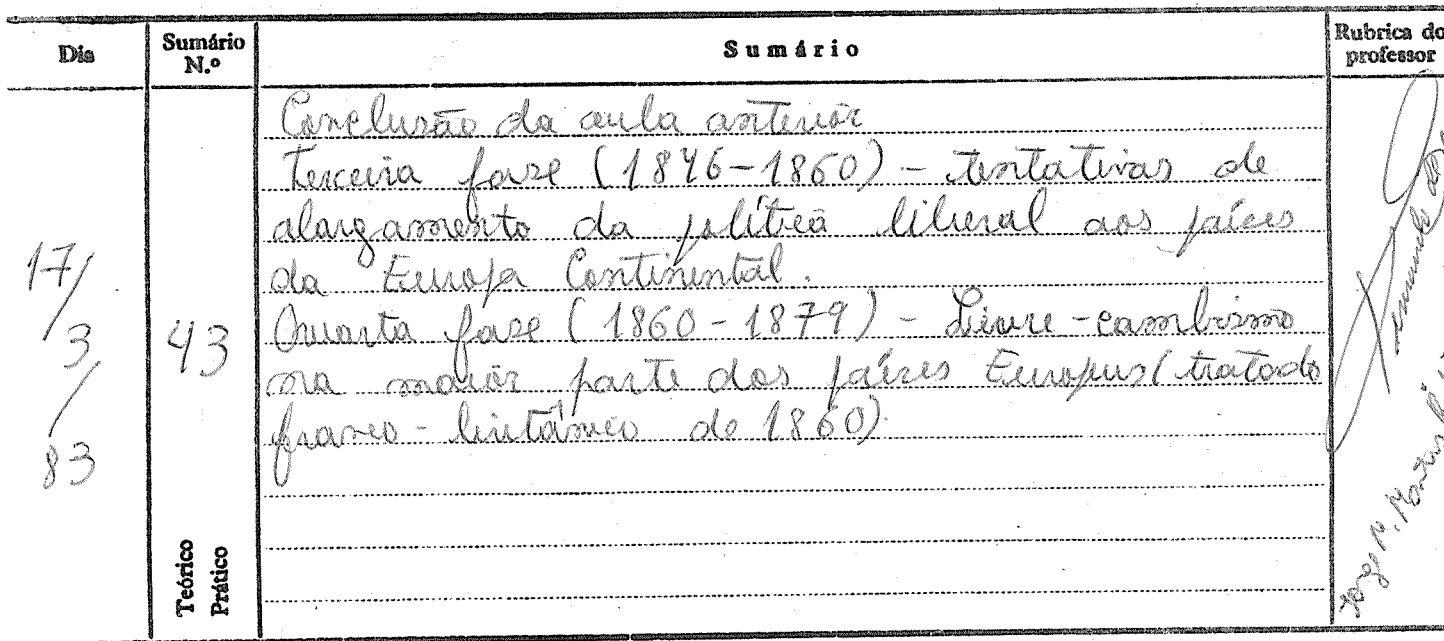 Dia
Sumário N.º
Sumário
Rubrica do professor
17/3/83
43
Teórico
Prático
Conclusão da aula anterior
Terceira fase (1846-1860) - tentativas de
alargamento da política liberal aos países
da Europa Continental.
Quarta fase (1860-1879) - Livre-cambismo
na maior parte dos países Europus (tratado
franco-britânico de 1860).
Jorge M.